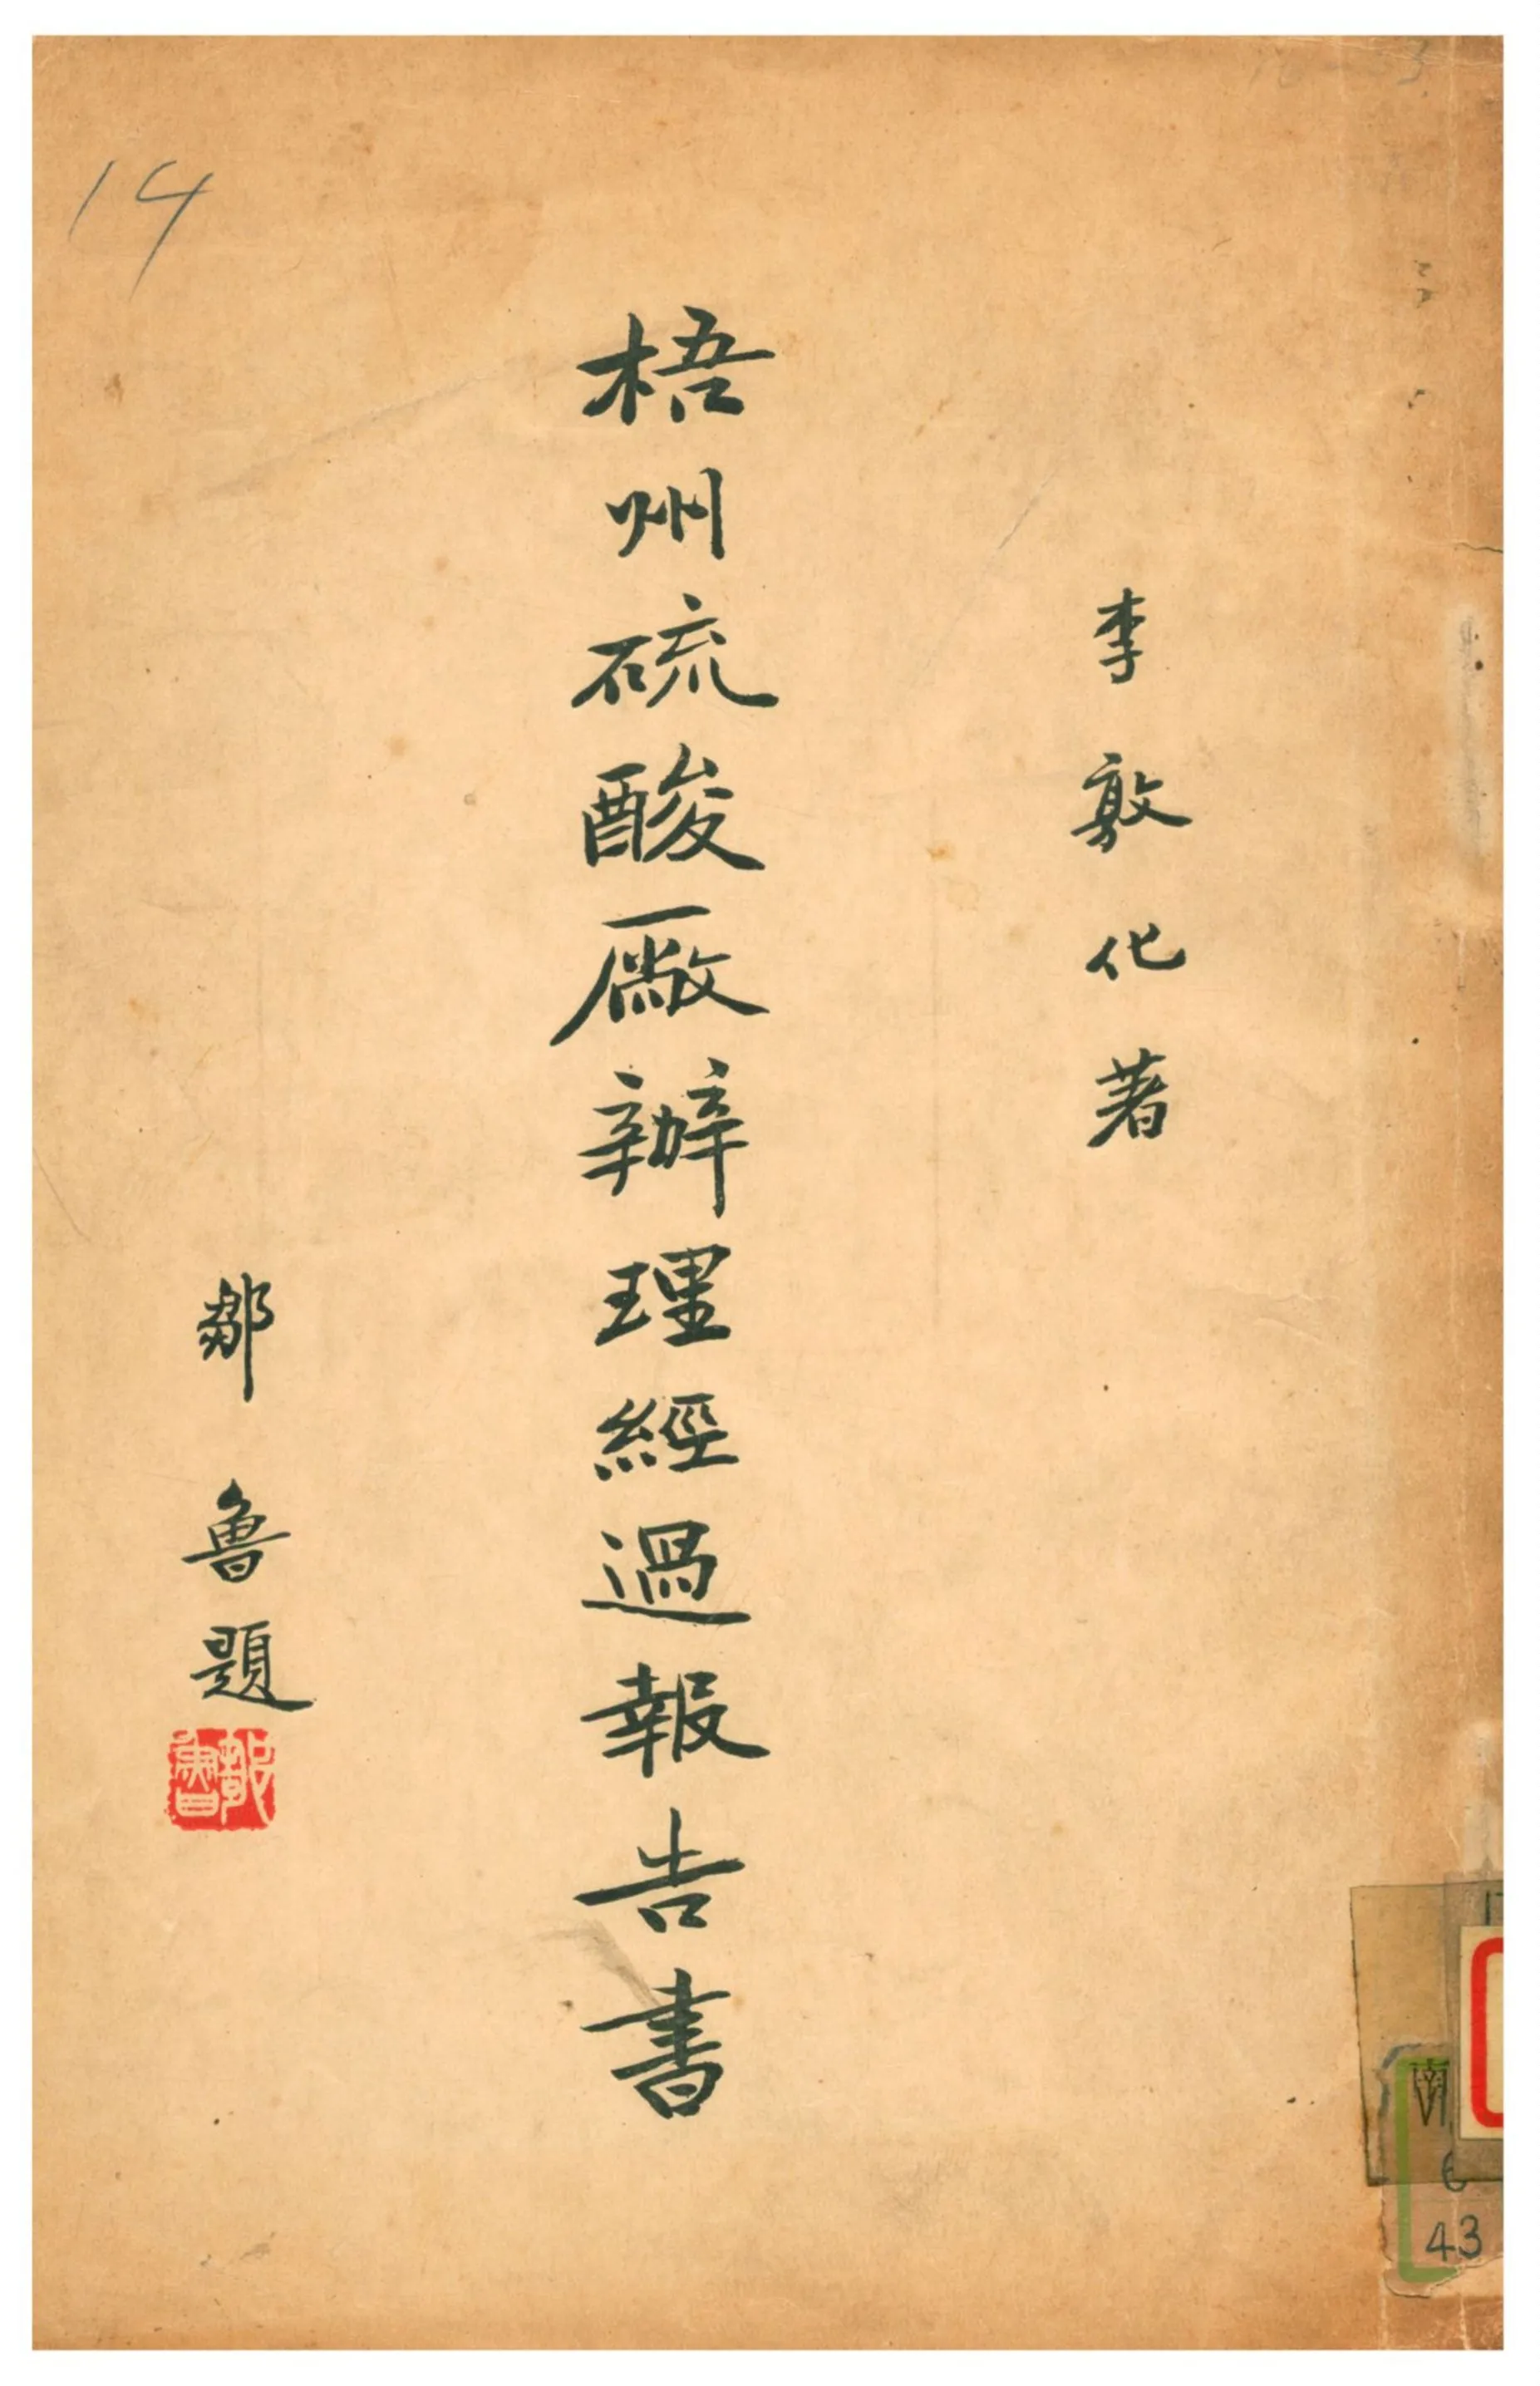 李敦化著
梧州硫酸廠辦理經過報告書
鄒魯題
鄒魯
14
南
6
43